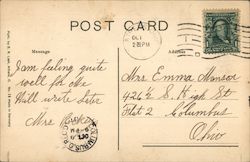 POST CARD
Message
Address
OCT
2-30 PM
I am feeling quite
well for me
Will write later
Mrs
Mrs Emma Mansor
426½ S. High St
Flat 2 Columbus
Ohio